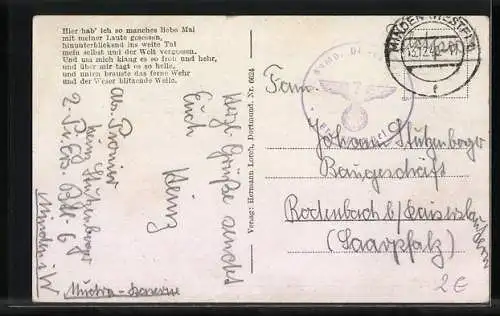 Hier hab' ich so manches liebe Mal
mit meiner Laute gesessen,
hinunterblickend ins weite Tal
mein selbst und der Welt vergessen.
Und um mich klang es so froh und hehr,
und über mir tagt es so helle,
und unten brauste das ferne Wehr
und der Weser blitzende Welle.
Herzl. Grüße sendet
Euch
Heinz
Abs. Pionier
Heinz Stutzenberger
2. Pi. Ers. Btl. 6
Minden i/W
Verlag: Hermann Lorch, Dortmund. Nr. 6024
MINDEN (WESTF)
f
Fam.
Johann Stutzenberger
Baugeschäft
Rodenbach b/Kaiserslautern
(Saarpfalz)
2€